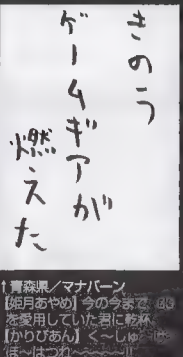 きのう
ゲームギアが
燃えた
↑青森県／マナバーン
【姫月あやめ】今の今まで
を愛用していた君に乾杯
【かりびあん】く〜しゅ
ほ〜はつれ〜